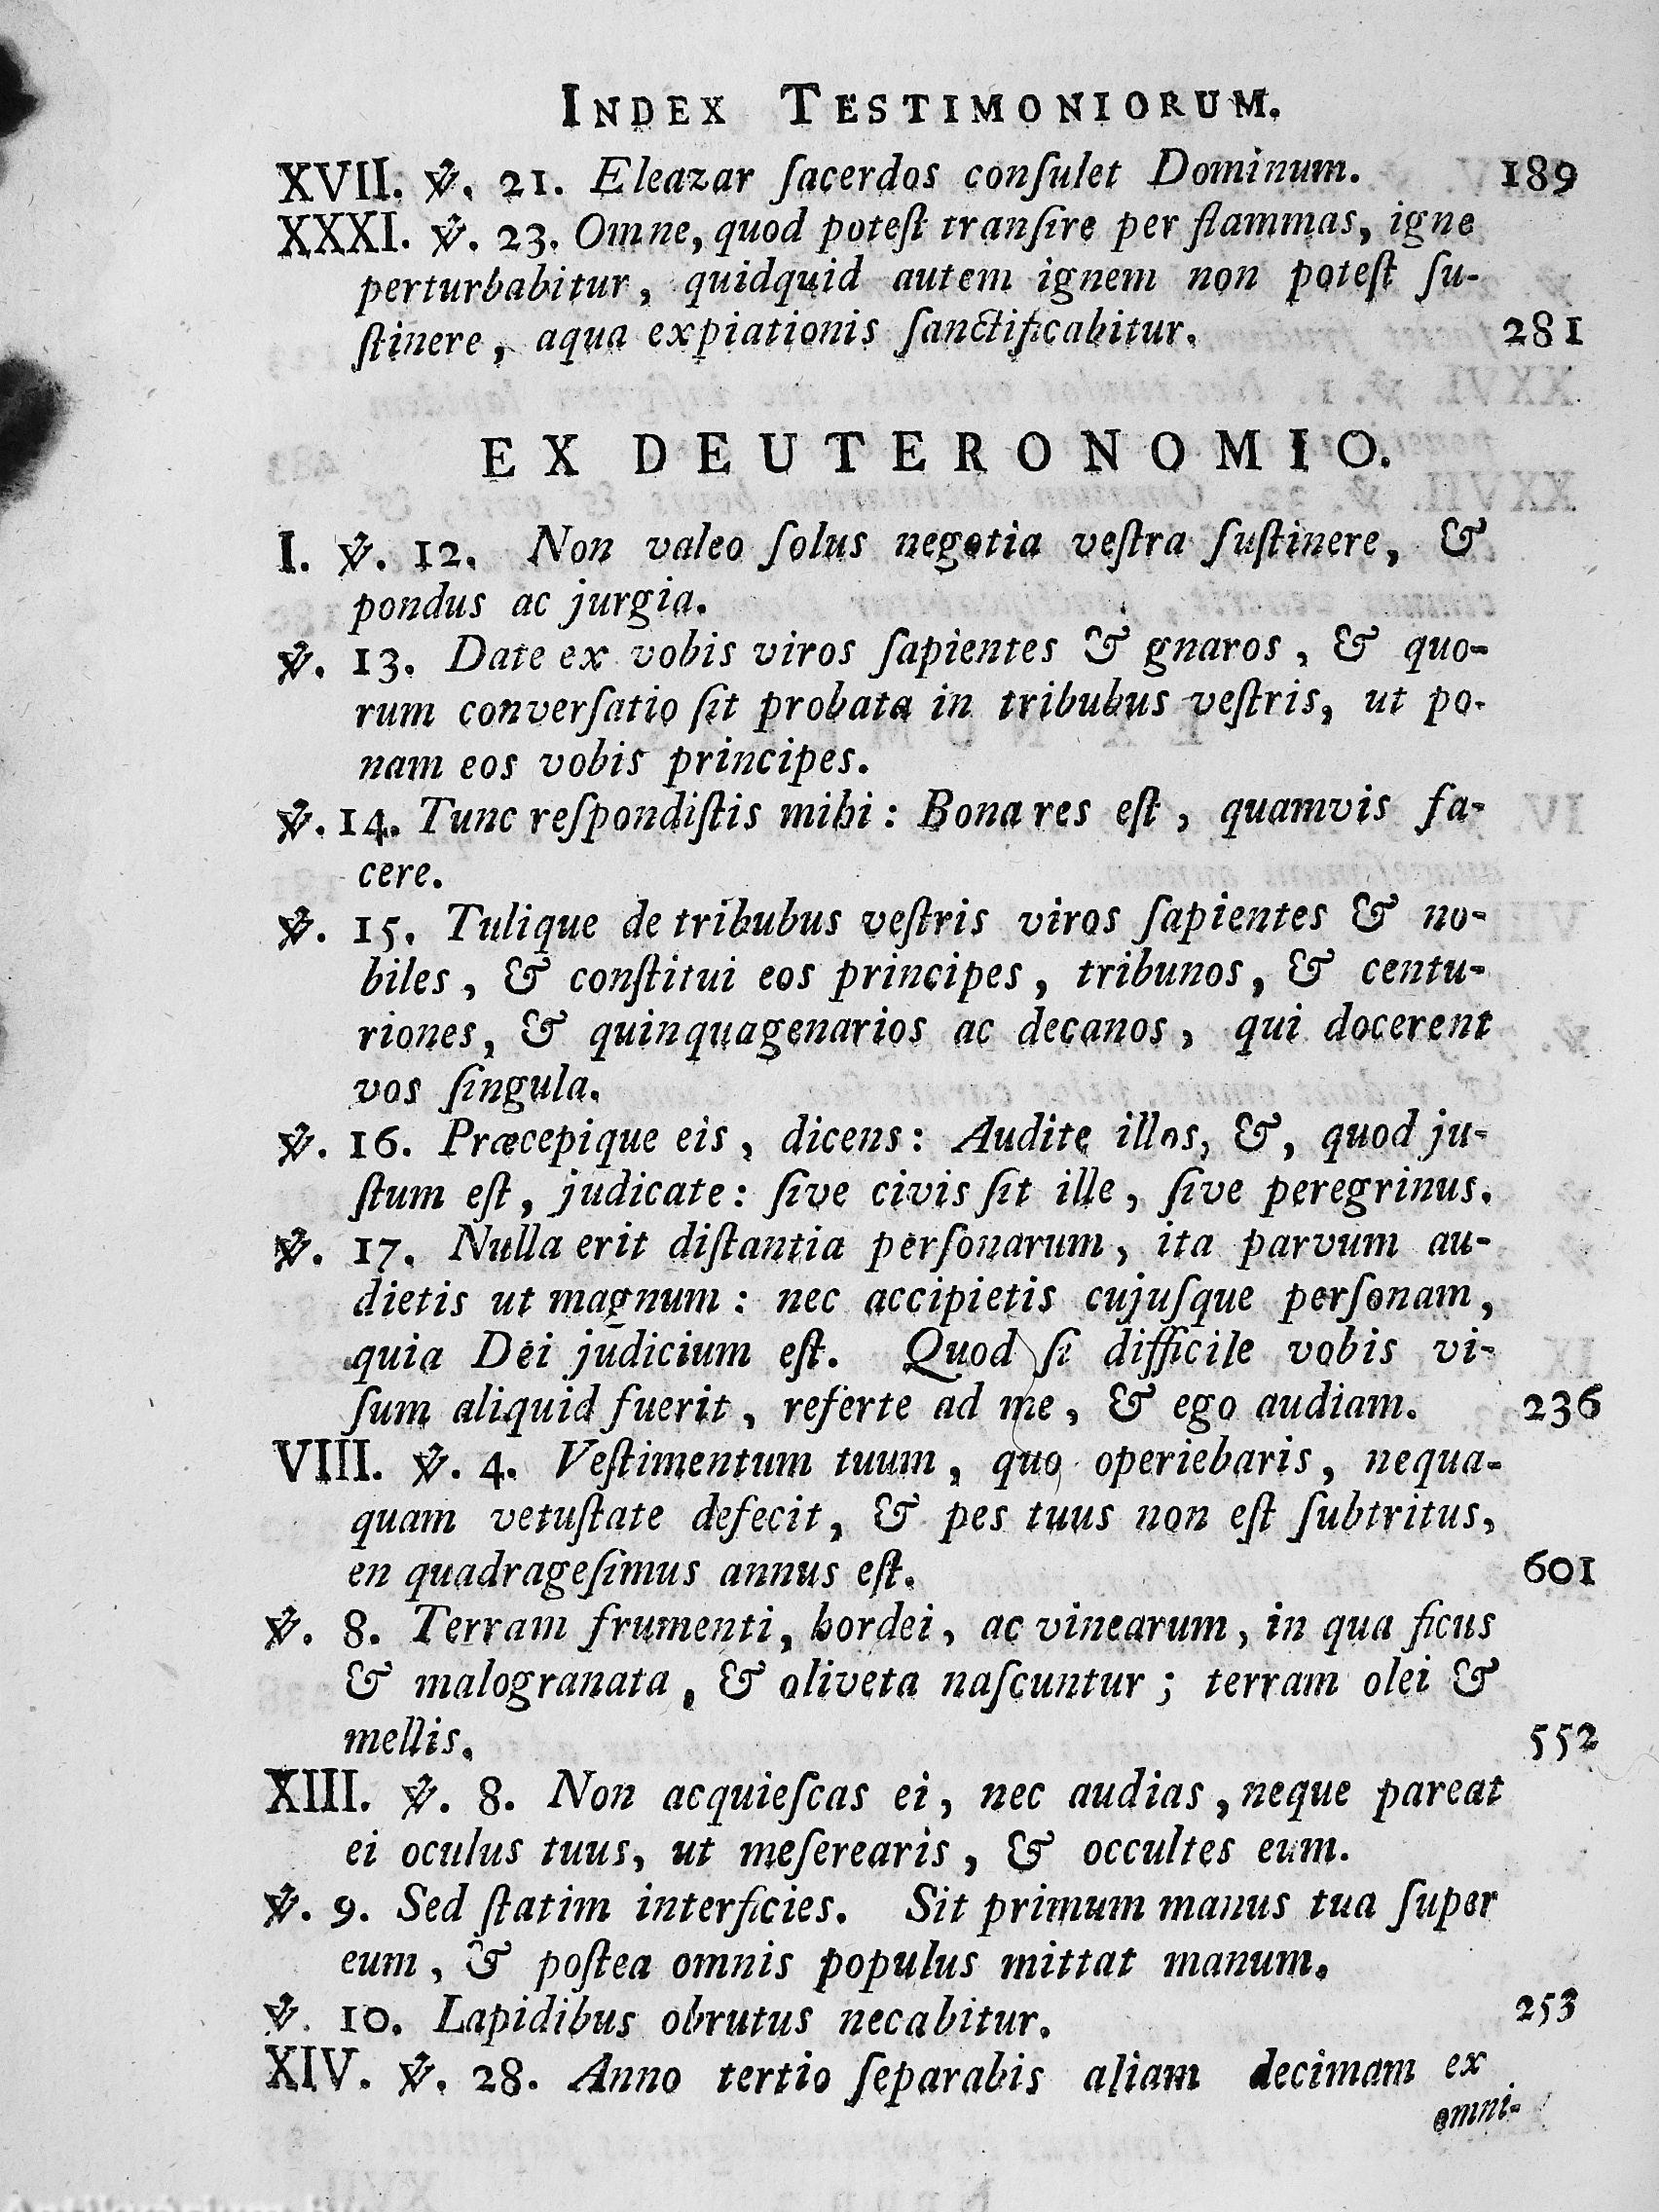 INDEX TESTIMONIORUM.
XVII. ℣. 21. Eleazar ſacerdos conſulet Dominum. 189
XXXI. ℣. 23. Omne, quod poteſt tranſire per flammas, igne
perturbabitur, quidquid autem ignem non poteſt ſu-
ſtinere, aqua expiationis ſanctificabitur. 281
EX DEUTERONOMIO.
I. ℣. 12. Non valeo ſolus negotia veſtra ſuſtinere, &
pondus ac jurgia.
℣. 13. Date ex vobis viros ſapientes & gnaros, & quo-
rum converſatio ſit probata in tribubus veſtris, ut po-
nam eos vobis principes.
℣. 14. Tunc reſpondiſtis mihi: Bona res eſt, quamvis fa-
cere.
℣. 15. Tulique de tribubus veſtris viros ſapientes & no-
biles, & conſtitui eos principes, tribunos, & centu-
riones, & quinquagenarios ac decanos, qui docerent
vos ſingula.
℣. 16. Præcepique eis, dicens: Audite illos, &, quod ju-
ſtum eſt, judicate: ſive civis ſit ille, ſive peregrinus.
℣. 17. Nulla erit diſtantia perſonarum, ita parvum au-
dietis ut magnum: nec accipietis cujuſque perſonam,
quia Dei judicium eſt. Quod ſi difficile vobis vi-
ſum aliquid fuerit, referte ad me, & ego audiam. 236
VIII. ℣. 4. Veſtimentum tuum, quo operiebaris, nequa-
quam vetuſtate defecit, & pes tuus non eſt ſubtritus,
en quadrageſimus annus eſt. 601
℣. 8. Terram frumenti, hordei, ac vinearum, in qua ficus
& malogranata, & oliveta naſcuntur; terram olei &
mellis. 552
XIII. ℣. 8. Non acquieſcas ei, nec audias, neque pareat
ei oculus tuus, ut meſerearis, & occultes eum.
℣. 9. Sed ſtatim interficies. Sit primum manus tua ſuper
eum, & poſtea omnis populus mittat manum.
℣. 10. Lapidibus obrutus necabitur. 253
XIV. ℣. 28. Anno tertio ſeparabis aliam decimam ex
omni-